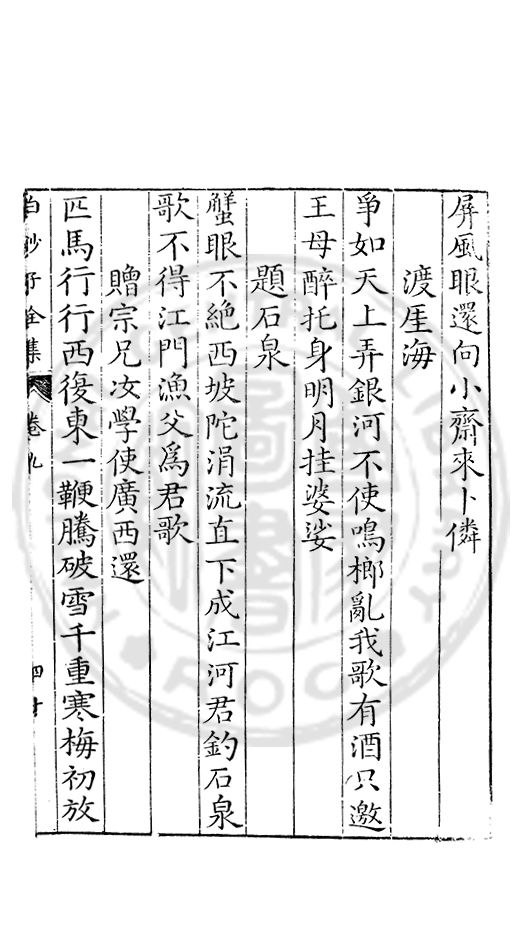 屏風眼還向小齋來卜僯
渡厓海
爭如天上弄銀河不使鳴榔亂我歌有酒只邀
王母醉托身明月挂婆娑
題石泉
蟹眼不絕西坡陀涓流直下成江河君釣石泉
歌不得江門漁父爲君歌
贈宗兄汝學使廣西還
匹馬行行西復東一鞭騰破雪千重寒梅初放
白沙子全集 卷九 四十